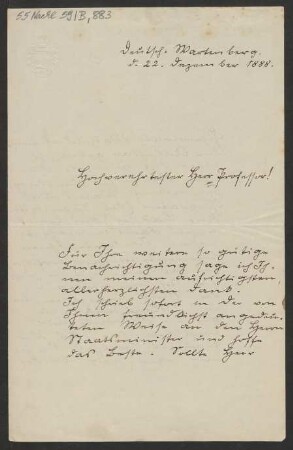 SS Nachl. 59 | B, 883
Deutsch-Wartenberg.
d. 22. Dezember 1888.
Hochverehrtester Herr Professor!
Für Ihre weitere so gütige
Benachrichtigung sage ich Ih-
nen meinen aufrichtigsten
allerherzlichsten Dank.
Ich schrieb sofort in der von
Ihnen freundlichst angedeu-
teten Weise an den Herrn
Staatsminister und hoffe
das Beste. Sollte Herr